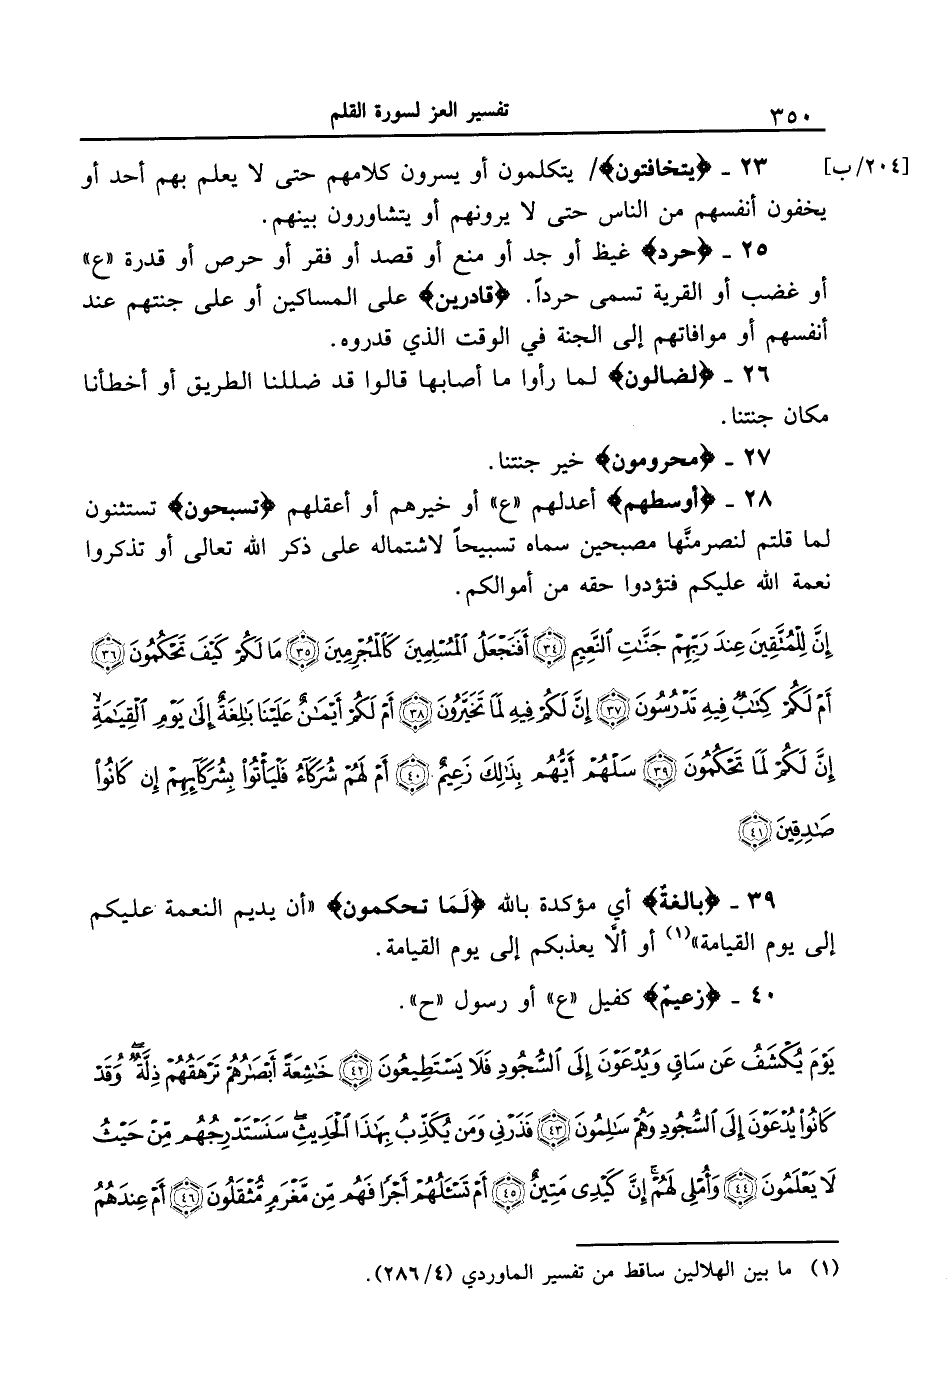 ٣٥٠ تفسير العز لسورة القلم
[٢٠٤/ب] ٢٣ ـ ﴿يتخافتون﴾/ يتكلمون أو يسرون كلامهم حتى لا يعلم بهم أحد أو
يخفون أنفسهم من الناس حتى لا يرونهم أو يتشاورون بينهم.
٢٥ ـ ﴿حرد﴾ غيظ أو جد أو منع أو قصد أو فقر أو حرص أو قدرة «ع»
أو غضب أو القرية تسمى حرداً. ﴿قادرين﴾ على المساكين أو على جنتهم عند
أنفسهم أو موافاتهم إلى الجنة في الوقت الذي قدروه.
٢٦ ـ ﴿لضالون﴾ لما رأوا ما أصابها قالوا قد ضللنا الطريق أو أخطأنا
مكان جنتنا.
٢٧ ـ ﴿محرومون﴾ خير جنتنا.
٢٨ ـ ﴿أوسطهم﴾ أعدلهم «ع» أو خيرهم أو أعقلهم ﴿تسبحون﴾ تستثنون
لما قلتم لنصرمنَّها مصبحين سماه تسبيحاً لاشتماله على ذكر الله تعالى أو تذكروا
نعمة الله عليكم فتؤدوا حقه من أموالكم.
إِنَّ لِلْمُتَّقِينَ عِندَ رَبِّهِمْ جَنَّٰتِ النَّعِيمِ ﴿٣٤﴾ أَفَنَجْعَلُ الْمُسْلِمِينَ كَالْمُجْرِمِينَ ﴿٣٥﴾ مَا لَكُمْ كَيْفَ تَحْكُمُونَ ﴿٣٦﴾
أَمْ لَكُمْ كِتَٰبٌ فِيهِ تَدْرُسُونَ ﴿٣٧﴾ إِنَّ لَكُمْ فِيهِ لَمَا تَخَيَّرُونَ ﴿٣٨﴾ أَمْ لَكُمْ أَيْمَٰنٌ عَلَيْنَا بَٰلِغَةٌ إِلَىٰ يَوْمِ الْقِيَٰمَةِ ۙ
إِنَّ لَكُمْ لَمَا تَحْكُمُونَ ﴿٣٩﴾ سَلْهُمْ أَيُّهُم بِذَٰلِكَ زَعِيمٌ ﴿٤٠﴾ أَمْ لَهُمْ شُرَكَاءُ فَلْيَأْتُوا۟ بِشُرَكَائِهِمْ إِن كَانُوا۟
صَٰدِقِينَ ﴿٤١﴾
٣٩ ـ ﴿بالغةٌ﴾ أي مؤكدة بالله ﴿لَمَا تحكمون﴾ «أن يديم النعمة عليكم
إلى يوم القيامة»(١) أو ألَّا يعذبكم إلى يوم القيامة.
٤٠ ـ ﴿زعيمٌ﴾ كفيل «ع» أو رسول «ح».
يَوْمَ يُكْشَفُ عَن سَاقٍ وَيُدْعَوْنَ إِلَى السُّجُودِ فَلَا يَسْتَطِيعُونَ ﴿٤٢﴾ خَٰشِعَةً أَبْصَٰرُهُمْ تَرْهَقُهُمْ ذِلَّةٌ ۖ وَقَدْ
كَانُوا۟ يُدْعَوْنَ إِلَى السُّجُودِ وَهُمْ سَٰلِمُونَ ﴿٤٣﴾ فَذَرْنِي وَمَن يُكَذِّبُ بِهَٰذَا الْحَدِيثِ ۖ سَنَسْتَدْرِجُهُم مِّنْ حَيْثُ
لَا يَعْلَمُونَ ﴿٤٤﴾ وَأُمْلِي لَهُمْ ۚ إِنَّ كَيْدِي مَتِينٌ ﴿٤٥﴾ أَمْ تَسْـَٔلُهُمْ أَجْرًا فَهُم مِّن مَّغْرَمٍ مُّثْقَلُونَ ﴿٤٦﴾ أَمْ عِندَهُمُ
(١) ما بين الهلالين ساقط من تفسير الماوردي (٢٨٦/٤).